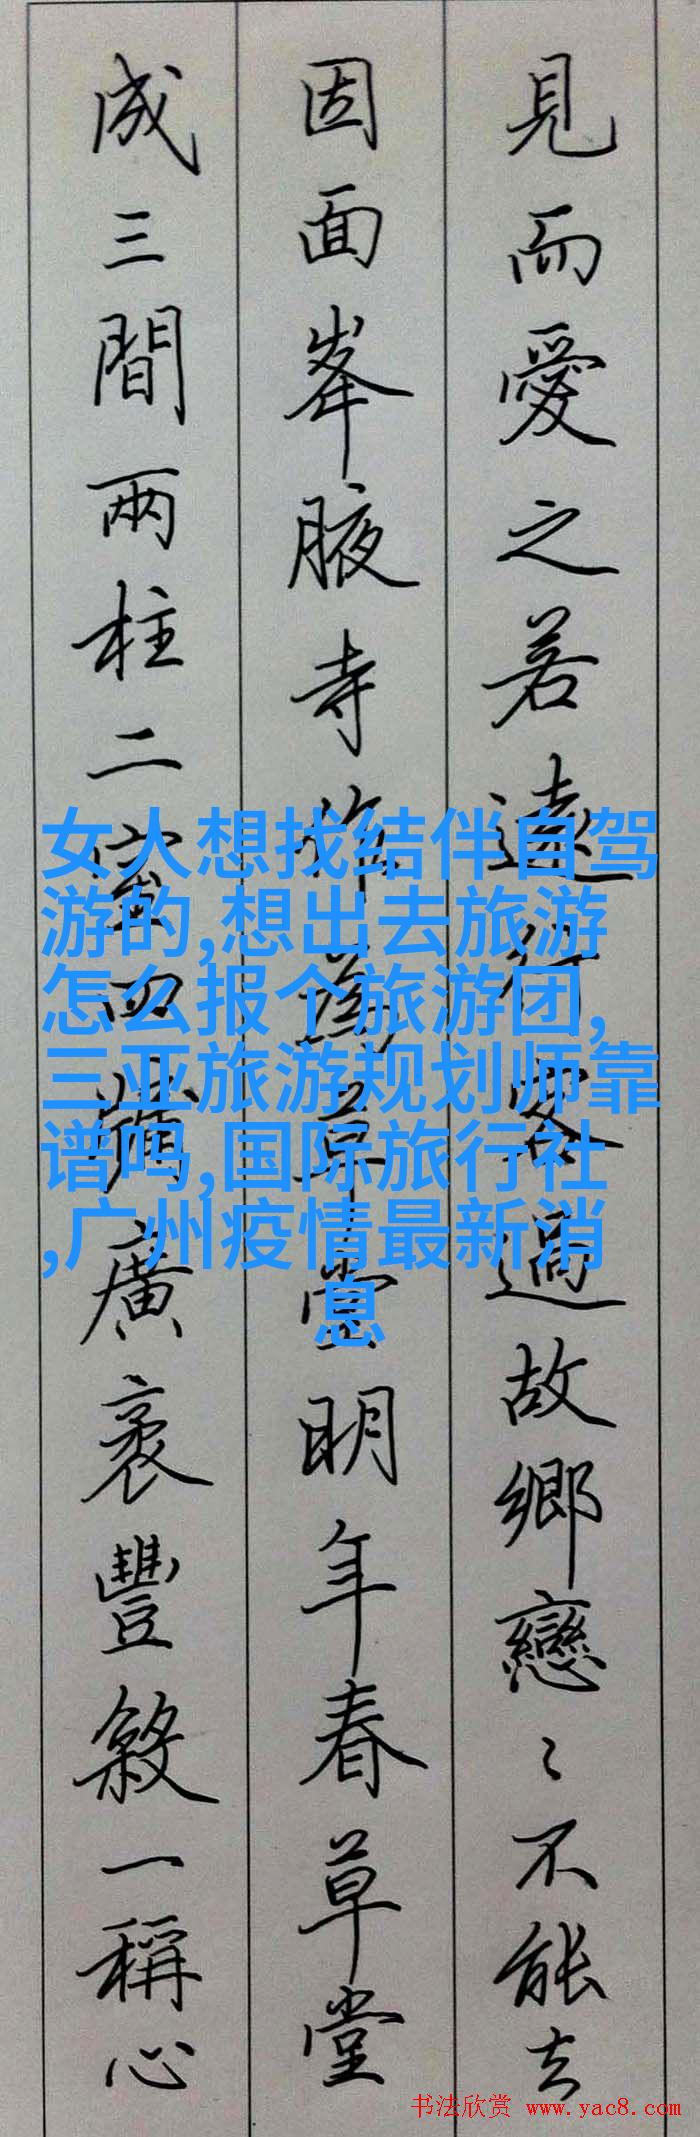 見而愛之若遠行客過故鄉戀々不能去
因面峯腋寺作為草堂明年春草堂
成三間兩柱二室四牖廣袤豐殺一稱心
女人想找结伴自驾
游的,想出去旅游
怎么报个旅游团,
三亚旅游规划师靠
谱吗,国际旅行社
,广州疫情最新消
息
书法欣赏 www.yac8.com